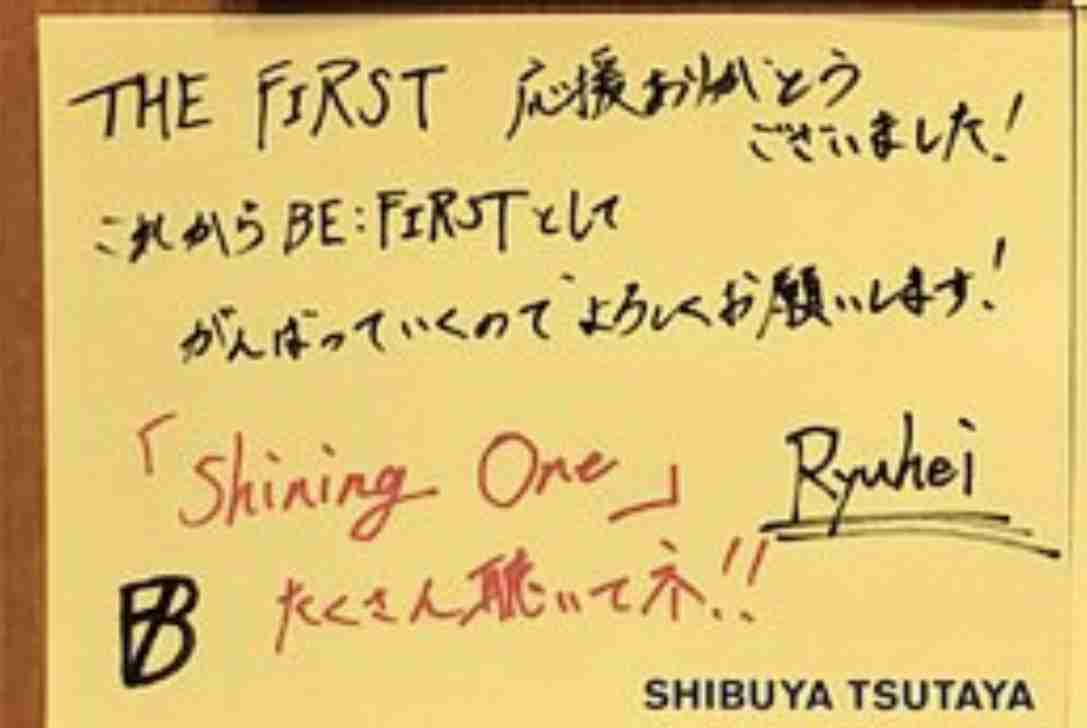 THE FIRST 応援ありがとう
ございました!
これからBE:FIRSTとして
がんばっていくのでよろしくお願いします!
「Shining One」
Ryuhei
たくさん聴いてネ!!
B
SHIBUYA TSUTAYA